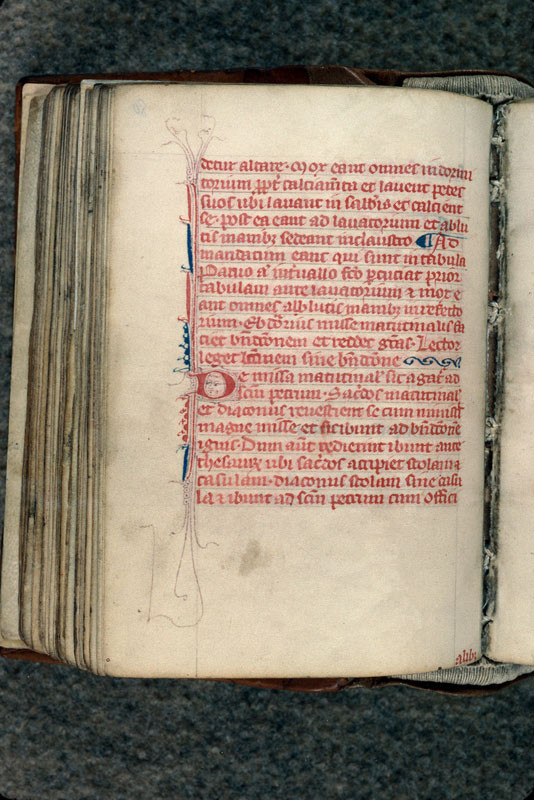 detur altare. Mox eant omnes in dormi
torium ꝓpt calciam̅ta et lavent pedes
suos ubi lavant in sabbis et calcient
se. post ea eant ad lavatorium et ablu
tis manibꝫ sedeant in claustro Ad
mandatum eant qui sunt in tabula
Parvo a̅ int̅uallo fc̅o ꝑcuciat prior
tabulam ante lavatorium ⁊ mox e
ant omnes ablutis manibꝫ in refecto
rium. Ebd̅orius misse matutinalis fa
ciet bn̅dc̅onem et reddet gr̅as. Lector
leget lc̅onem sine bn̅dc̅one
De missa matutinal' sic agat̅ ad
sc̅m petrum. Sac̅dos matutinal'
et diaconus revestient se cum minist̅
magne misse et
ibunt ad bn̅dc̅one
ignis. Dum aut̅ redierint ibunt ante
thesaurꝫ ubi sac̅dos accipiet stolam ⁊
casulam. diaconus stolam sine casu
la ⁊ ibunt ad sc̅m petrum cum offici
alibꝫ